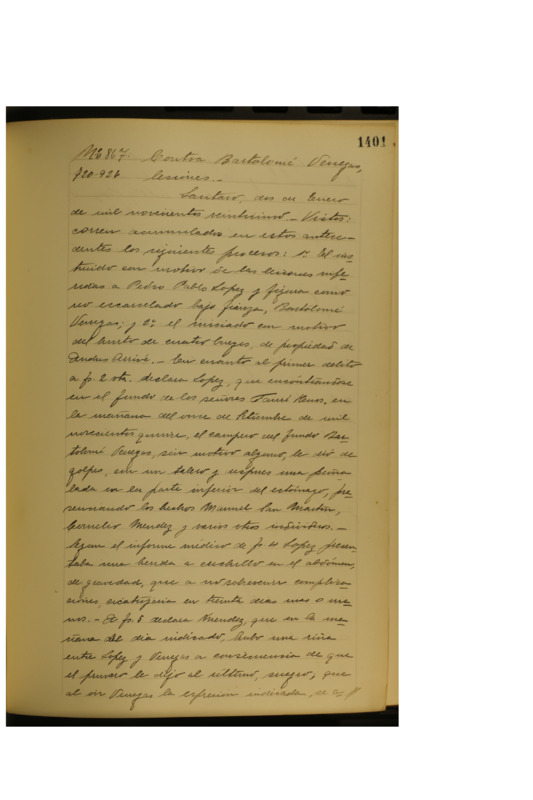 1401
Nº 867. Contra Bartolomé Venegas,
920-926 lesiones.-
Santiago, dos de Enero
de mil novecientos veintiuno.- Vistos:
corren acumulados en estos antece-
dentes los siguientes procesos: 1º El ins-
truido con motivo de las lesiones infe-
ridas a Pedro Pablo Lopez y figura como
reo escarcelado bajo fianza, Bartolomé
Venegas; y 2º el iniciado con motivo
del hurto de cuatro bueyes, de propiedad de
.- En cuanto al primer delito
a fs. 2 vta. declara Lopez, que encontrándose
en el fundo de los señores Hnos, en
la mañana del once de Setiembre de mil
novecientos quince, el campero del fundo Bar-
tolomé Venegas, sin motivo alguno, le dió de
golpes, con un y despues una puña-
lada en la parte inferior del estómago, pre-
senciando los hechos Manuel San Martin,
Cornelio Mendez y varios otros individuos.-
Segun el informe médico de fs. 4 Lopez presen-
taba una herida a cuchillo en el abdómen,
de gravedad, que a no sobrevenir complica-
ciones, en treinta dias mas o me-
nos.- A fs. 5 declara Mendez, que en la ma-
ñana del dia indicado, hubo una riña
entre Lopez y Venegas a consecuencia de que
el primero le dijo al último, suegro; que
al oir Venegas la espresion indicada, se